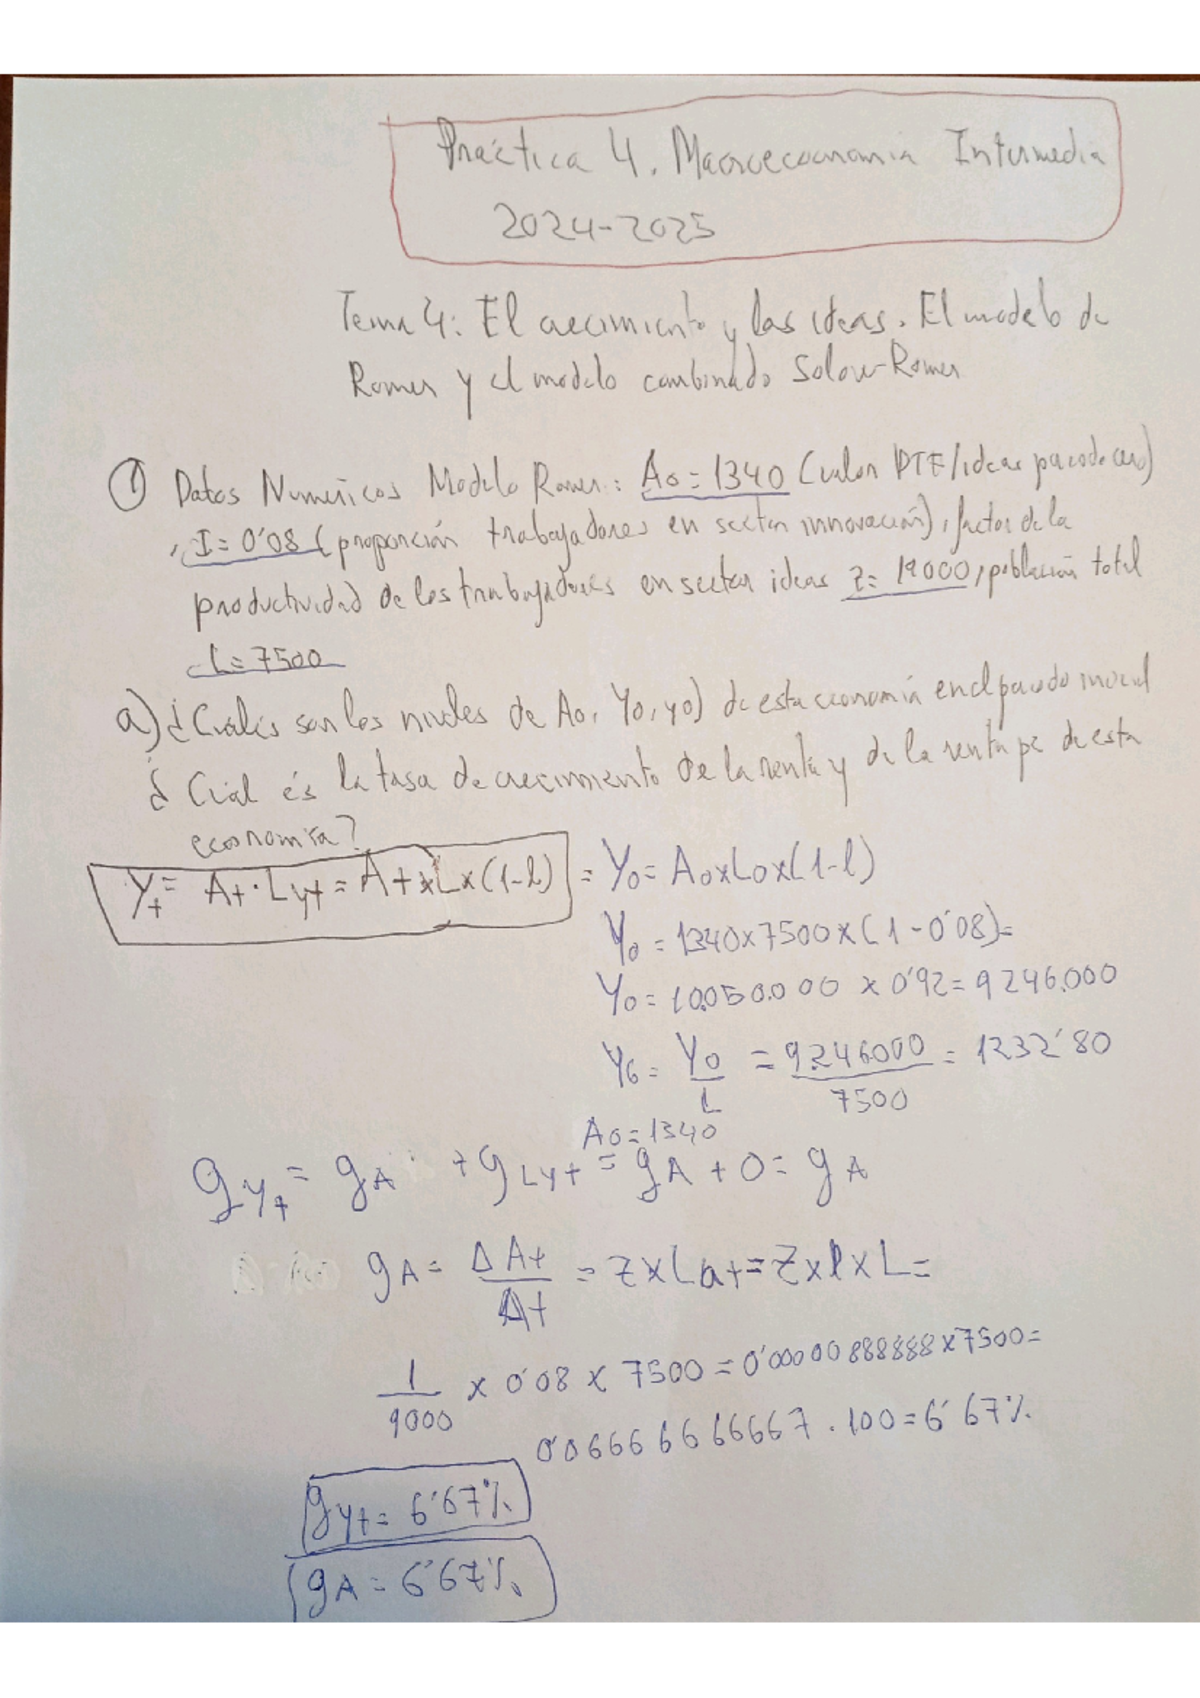 Práctica 4. Macroeconomia Intermedia
2024-2025
Tema 4: El crecimiento y las ideas. El modelo de
Romer y el modelo combinado Solow-Romer
① Datos Numéricos Modelo Romer: A0 = 1340 (valor PTF/ideas periodo cero)
, I = 0'08 (proporción trabajadores en sector innovación), factor de la
productividad de los trabajadores en sector ideas z = 1/9000, población total
L = 7500
a) ¿Cuáles son los niveles de A0, Y0, y0) de esta economía en el periodo inicial
¿Cuál és la tasa de crecimiento de la renta y de la renta pc de esta
economía?
Y_t = A_t · L_yt = A_t x L x (1-l) = Y0 = A0 x L0 x (1-l)
Y0 = 1340 x 7500 x (1-0'08) =
Y0 = 10.050.000 x 0'92 = 9246.000
y0 = Y0/L = 9.246000/7500 = 1232'80
A0 = 1340
g_Yt = g_A + g_Lyt = g_A + 0 = g_A
g_A = ΔA_t/A_t = z x L_at = z x l x L =
1/9000 x 0'08 x 7500 = 0'00000888888 x 7500 =
0'0666666667 · 100 = 6'67%
g_yt = 6'67%
g_A = 6'67%